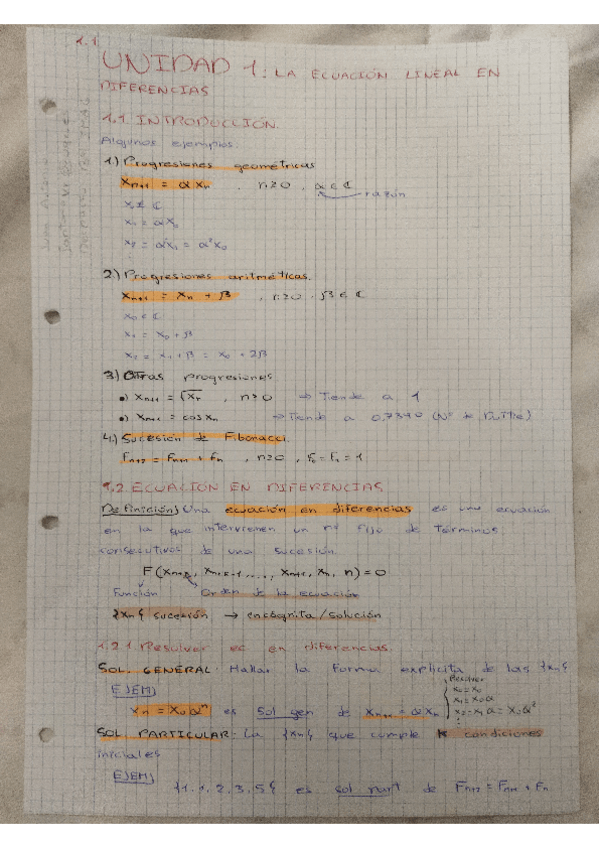 1.1
UNIDAD 1: LA ECUACIÓN LINEAL EN
DIFERENCIAS
1.1. INTRODUCCIÓN.
Algunos ejemplos:
1) Progresiones geométricas
Xn+1 = αXn , n≥0 , α ∈ ℂ
razón
X0 ∈ ℂ
X1 = αX0
X2 = αX1 = α²X0
2) Progresiones aritméticas.
Xn+1 = Xn + β , n≥0 , β ∈ ℂ
X0 ∈ ℂ
X1 = X0 + β
X2 = X1 + β = X0 + 2β
3) Otras progresiones
•) Xn+1 = √Xn , n≥0 → Tiende a 1
•) Xn+1 = cos Xn → Tiende a 0,7390 (Nº de
4.) Sucesión de Fibonacci.
Fn+2 = Fn+1 + Fn , n≥0 , F0 = F1 = 1
1.2 ECUACIÓN EN DIFERENCIAS
Definición) Una ecuación en diferencias es una ecuación
en la que intervienen un nº fijo de términos
consecutivos de una sucesión.
F(Xn+k, Xn+k-1, ..., Xn+1, Xn, n) = 0
Función Orden de la ecuación
{Xn} sucesión → incógnita/solución
1.2.1. Resolver ec en diferencias.
SOL. GENERAL: Hallar la forma explícita de las {Xn}
EJEM)
Xn = X0 αⁿ es Sol gen de Xn+1 = αXn
Resolver
X0 = X0
X1 = X0α
X2 = X1α = X0α²
SOL PARTICULAR: La {Xn} que cumple K condiciones
iniciales
EJEM)
{1, 1, 2, 3, 5} es sol part de Fn+2 = Fn+1 + Fn